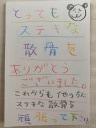 とっても
ステキな
散骨を
ありがとう
ございました。
これからも
ステキな散骨を
頑張って下さい